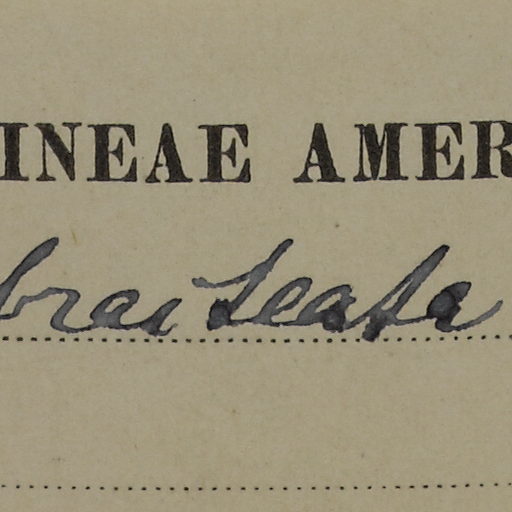 INEAE AMER
bracteata